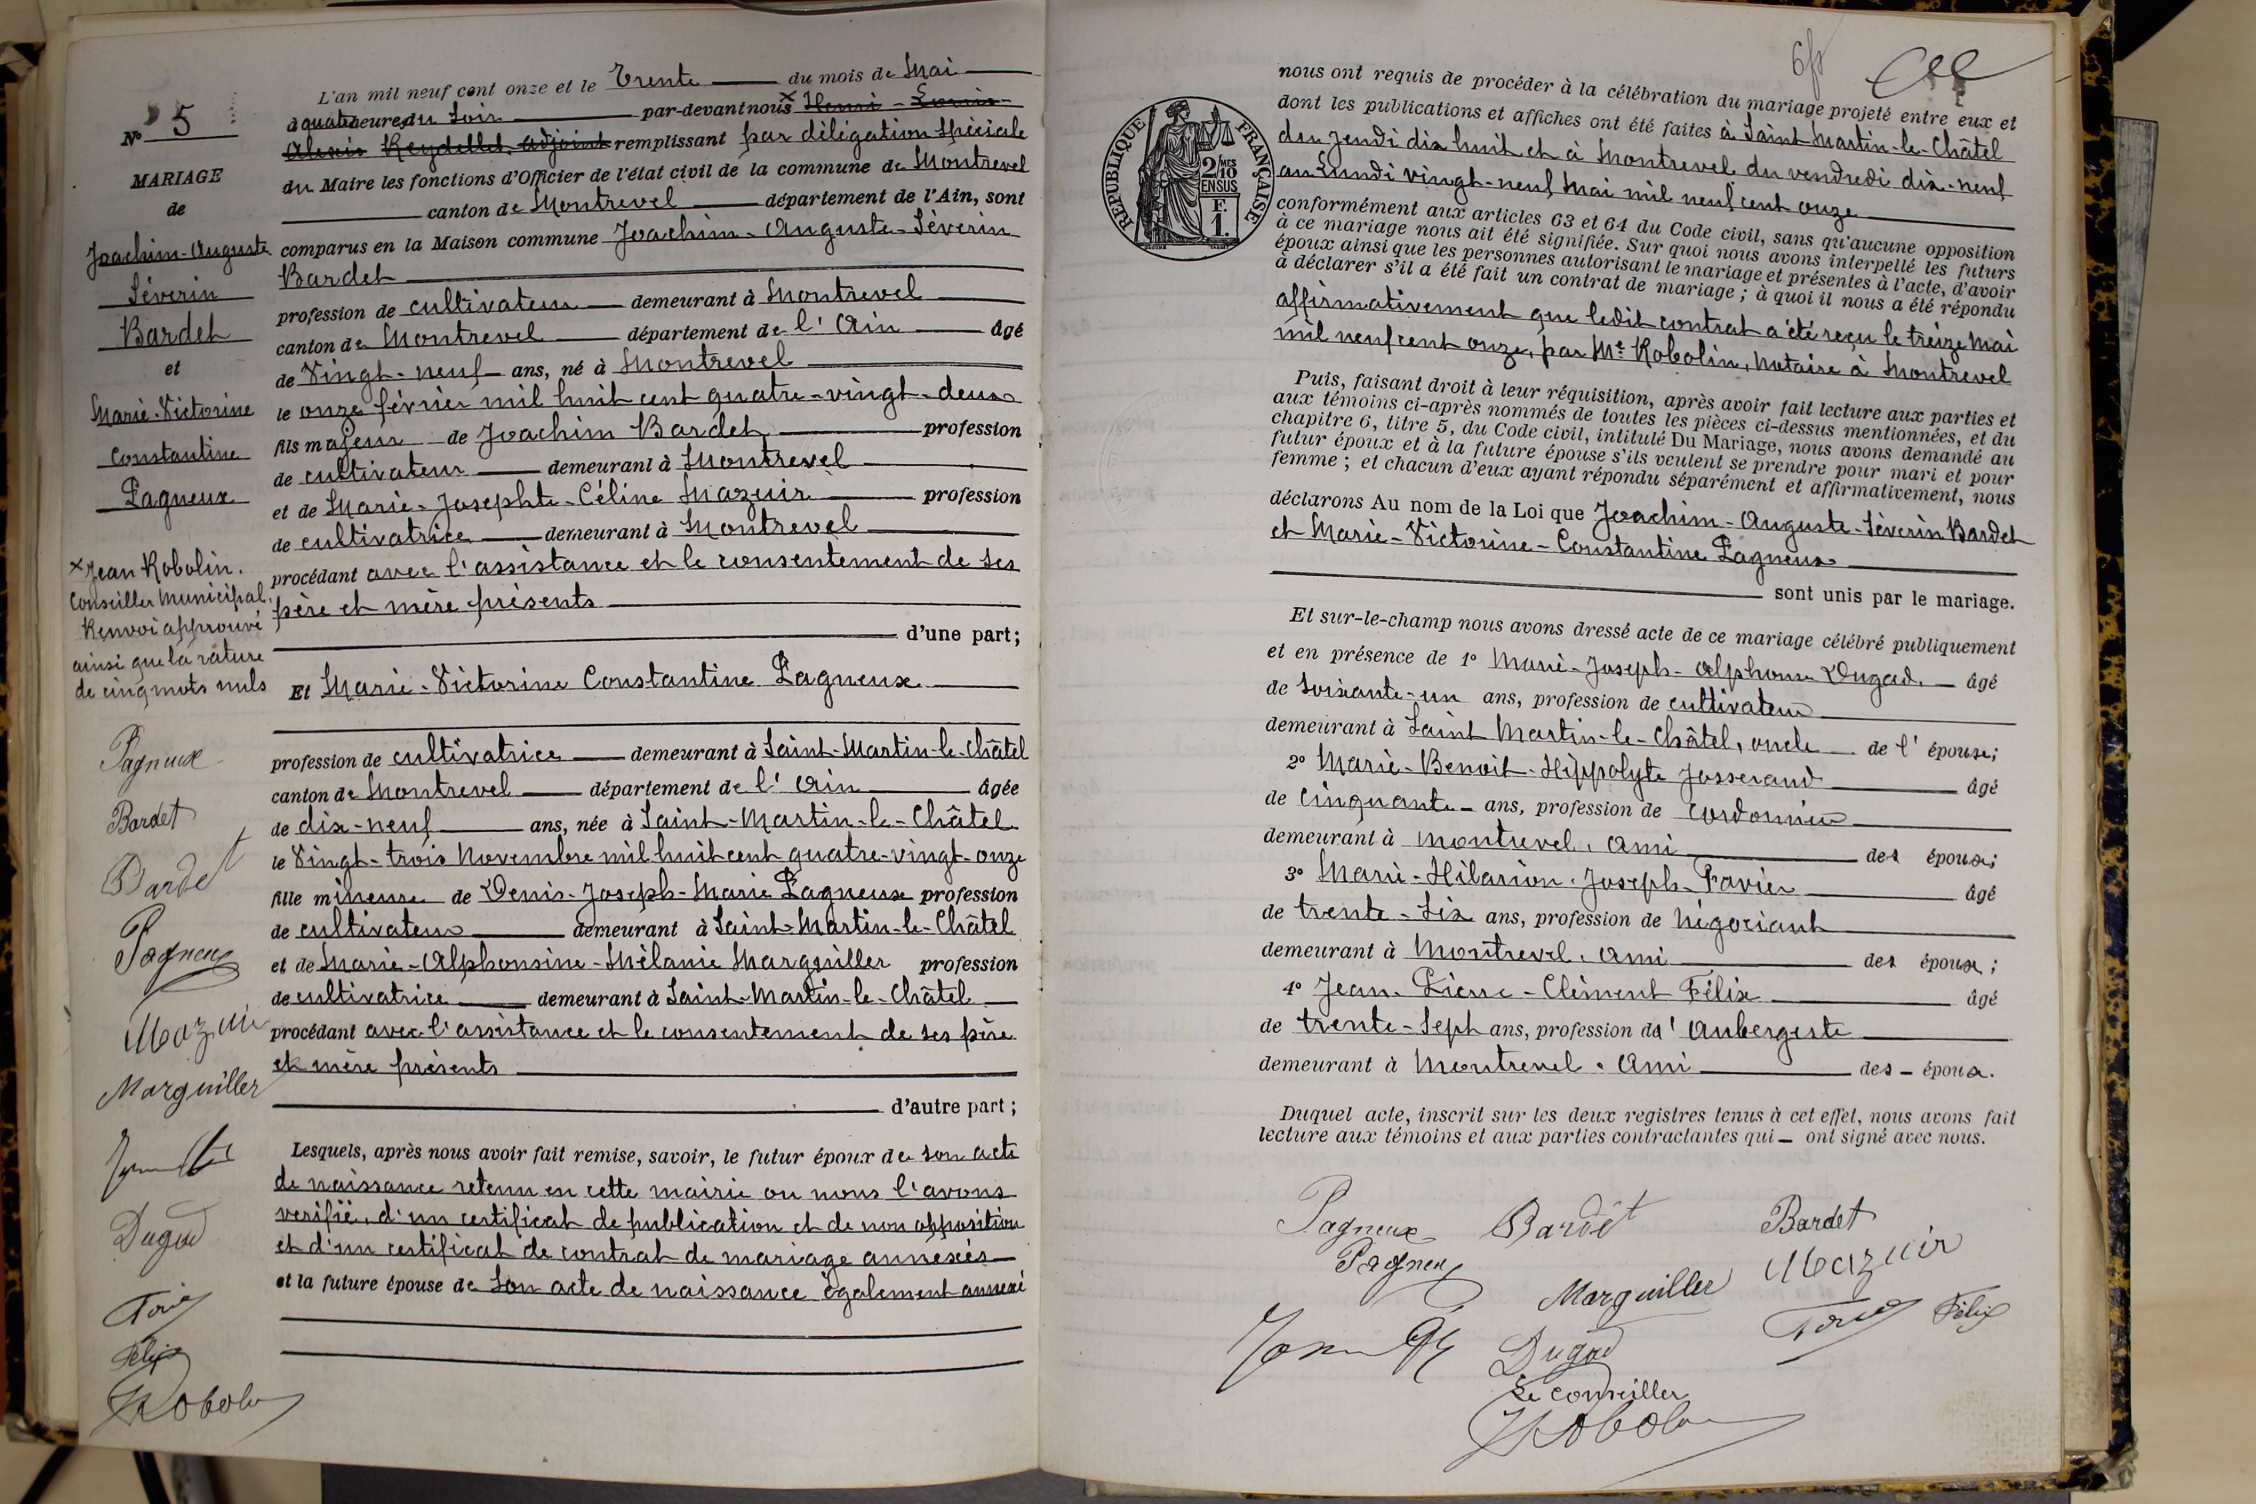 N° 5
MARIAGE
de
Joachim-Auguste
Séverin
Bardet
et
Marie-Victorine
Constantine
Pagneux
× Jean Robolin.
Conseiller Municipal.
Renvoi approuvé
ainsi que la rature
de cinq mots nuls
Pagneux
Bardet
Bardet
Pagneux
Mazuir
Marguiller
Dugad
Félix
Robolin
L'an mil neuf cent onze et le Trente du mois de Mai
à quatre heures du Soir par-devant nous × Henri-Louis-
Alexis Reydellet, adjoint remplissant par délégation spéciale
du Maire les fonctions d'Officier de l'état civil de la commune de Montrevel
canton de Montrevel département de l'Ain, sont
comparus en la Maison commune Joachim-Auguste-Séverin
Bardet
profession de cultivateur demeurant à Montrevel
canton de Montrevel département de l'Ain âgé
de Vingt-neuf ans, né à Montrevel
le onze février mil huit cent quatre-vingt-deux
fils majeur de Joachim Bardet profession
de cultivateur demeurant à Montrevel
et de Marie-Josephte-Céline Mazuir profession
de cultivatrice demeurant à Montrevel
procédant avec l'assistance et le consentement de ses
père et mère présents
d'une part;
Et Marie-Victorine Constantine Pagneux
profession de cultivatrice demeurant à Saint-Martin-le-Châtel
canton de Montrevel département de l'Ain âgée
de dix-neuf ans, née à Saint-Martin-le-Châtel
le Vingt-trois Novembre mil huit cent quatre-vingt-onze
fille mineure de Denis-Joseph-Marie Pagneux profession
de cultivateur demeurant à Saint-Martin-le-Châtel
et de Marie-Alphonsine-Mélanie Marguiller profession
de cultivatrice demeurant à Saint-Martin-le-Châtel
procédant avec l'assistance et le consentement de ses père
et mère présents
d'autre part;
Lesquels, après nous avoir fait remise, savoir, le futur époux de son acte
de naissance retenu en cette mairie ou nous l'avons
verifié, d'un certificat de publication et de non opposition
et d'un certificat de contrat de mariage annexés
et la future épouse de Son acte de naissance également annexé
RÉPUBLIQUE FRANÇAISE
2/10
EN SUS
F.
1.
nous ont requis de procéder à la célébration du mariage projeté entre eux et
dont les publications et affiches ont été faites à Saint Martin-le-Châtel
du Jeudi dix huit et à Montrevel du vendredi dix-neuf
au Lundi vingt-neuf Mai mil neuf cent onze
conformément aux articles 63 et 64 du Code civil, sans qu'aucune opposition
à ce mariage nous ait été signifiée. Sur quoi nous avons interpellé les futurs
époux ainsi que les personnes autorisant le mariage et présentes à l'acte, d'avoir
à déclarer s'il a été fait un contrat de mariage; à quoi il nous a été répondu
affirmativement que ledit contrat a été reçu le treize Mai
mil neuf cent onze, par Me Robolin, Notaire à Montrevel
Puis, faisant droit à leur réquisition, après avoir fait lecture aux parties et
aux témoins ci-après nommés de toutes les pièces ci-dessus mentionnées, et du
chapitre 6, titre 5, du Code civil, intitulé Du Mariage, nous avons demandé au
futur époux et à la future épouse s'ils veulent se prendre pour mari et pour
femme; et chacun d'eux ayant répondu séparément et affirmativement, nous
déclarons Au nom de la Loi que Joachim-Auguste-Séverin Bardet
et Marie-Victorine-Constantine Pagneux
sont unis par le mariage.
Et sur-le-champ nous avons dressé acte de ce mariage célébré publiquement
et en présence de 1° Marie-Joseph-Alphonse Dugad. âgé
de Soixante-un ans, profession de cultivateur
demeurant à Saint Martin-le-Châtel, oncle de l'épouse;
2° Marie-Benoit-Hippolyte Josserand âgé
de Cinquante ans, profession de cordonnier
demeurant à Montrevel. Ami des époux;
3° Marie-Hilarion-Joseph Favier âgé
de trente-Six ans, profession de Négociant
demeurant à Montrevel. Ami des époux;
4° Jean-Pierre-Clément Félix âgé
de trente-Sept ans, profession d'Aubergiste
demeurant à Montrevel. Ami des époux.
Duquel acte, inscrit sur les deux registres tenus à cet effet, nous avons fait
lecture aux témoins et aux parties contractantes qui ont signé avec nous.
Pagneux Bardet Bardet
Pagneux Marguiller Mazuir
Dugad Félix
Le Conseiller
Robolin